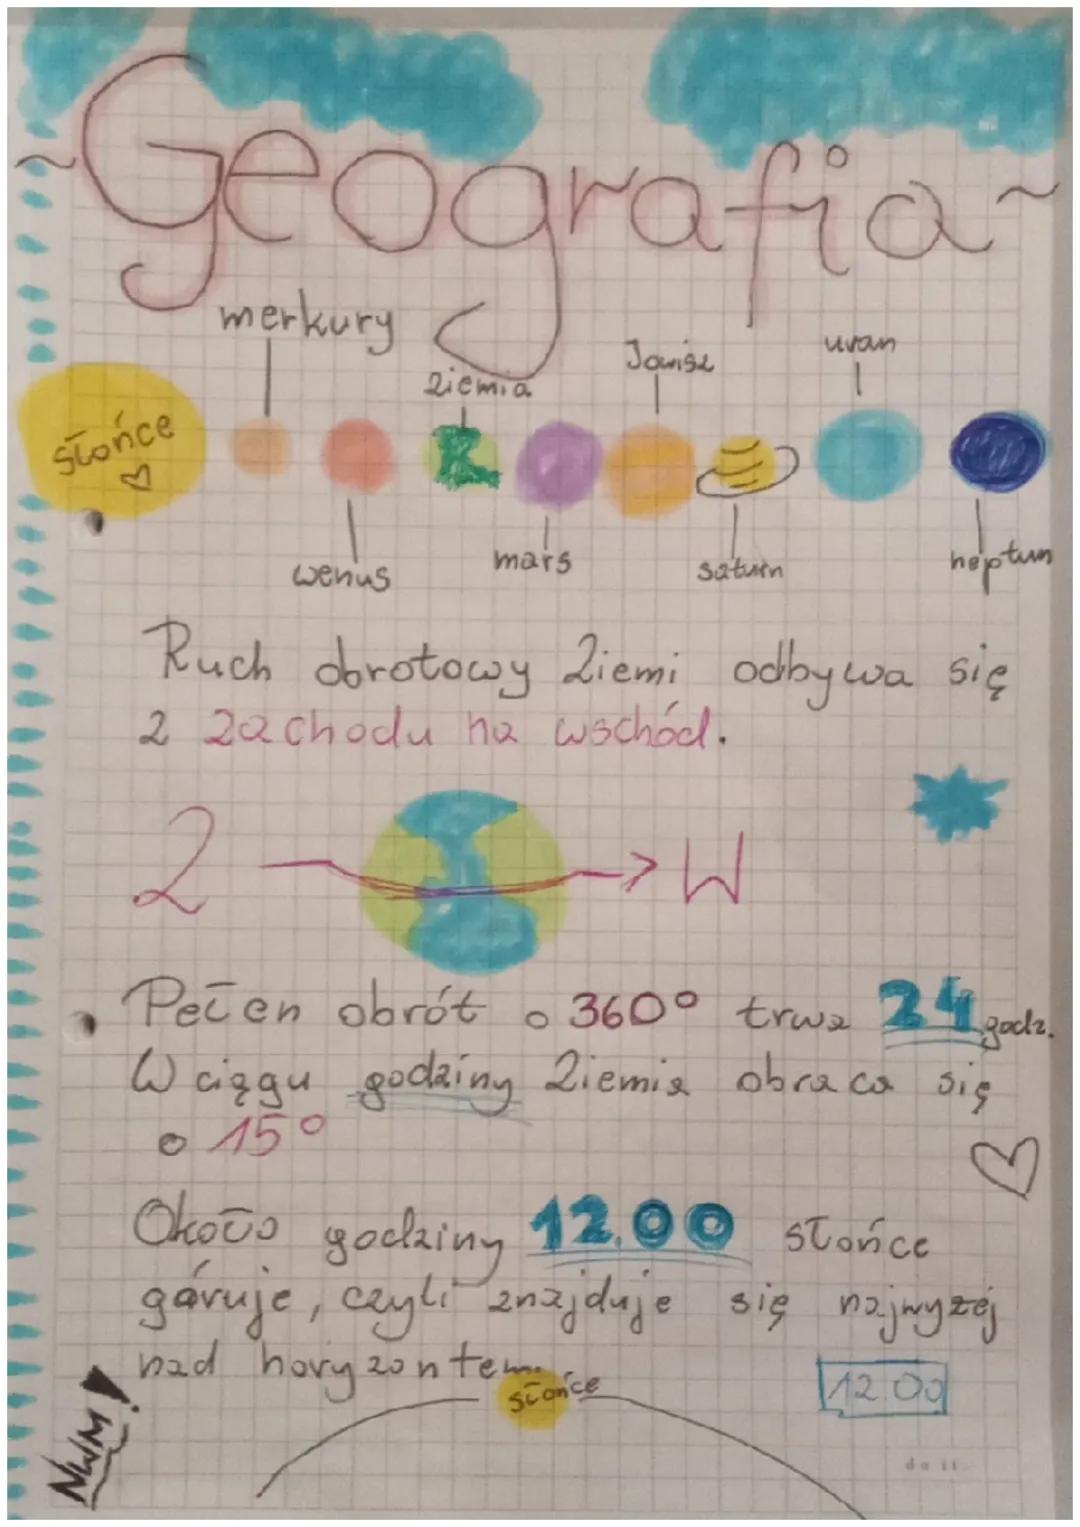 ~Geografia~
merkury
ziemia
Jowisz
uran
słońce
wenus
mars
saturn
neptun
Ruch obrotowy Ziemi odbywa się
z zachodu na wschód.
Z → W
Pełen obrót o 360° trwa 24 godz.
W ciągu godziny Ziemia obraca się
o 15°
Około godziny 12.00 słońce
góruje, czyli znajduje się najwyżej
nad horyzontem.
słońce
12.00
NWM!